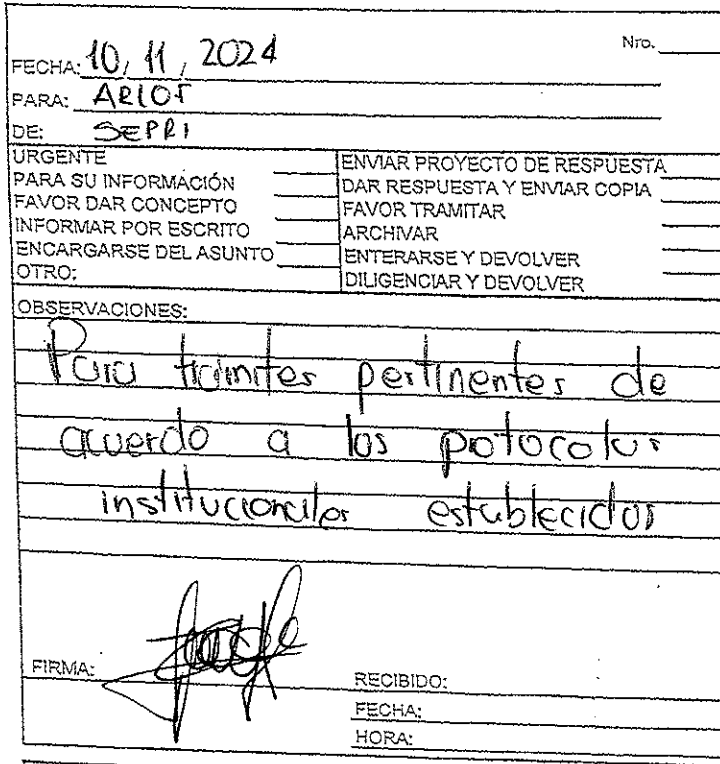 Nro.
FECHA: 10, 11, 2024
PARA: ARIOF
DE: SEPRI
URGENTE
PARA SU INFORMACIÓN
FAVOR DAR CONCEPTO
INFORMAR POR ESCRITO
ENCARGARSE DEL ASUNTO
OTRO:
ENVIAR PROYECTO DE RESPUESTA
DAR RESPUESTA Y ENVIAR COPIA
FAVOR TRAMITAR
ARCHIVAR
ENTERARSE Y DEVOLVER
DILIGENCIAR Y DEVOLVER
OBSERVACIONES:
Para tramites pertinentes de
acuerdo a los protocolos
institucionales establecidos
FIRMA:
RECIBIDO:
FECHA:
HORA: